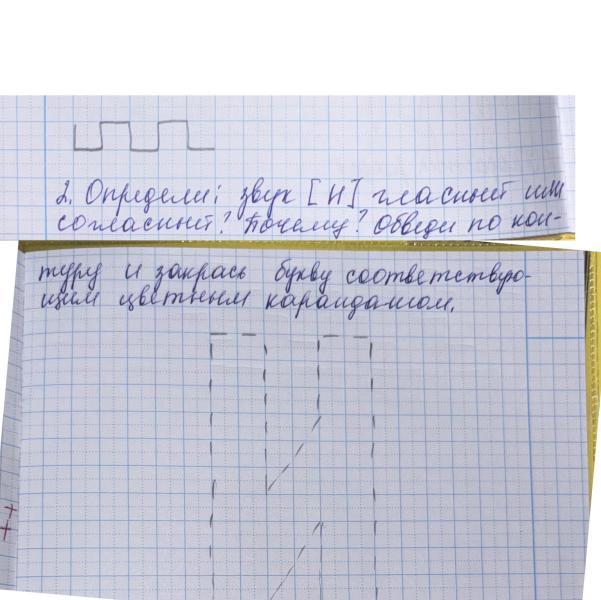 2. Определи: звук [И] гласный или
согласный? Почему? Обведи по кон-
туру и закрась букву соответствую-
щим цветным карандашом.